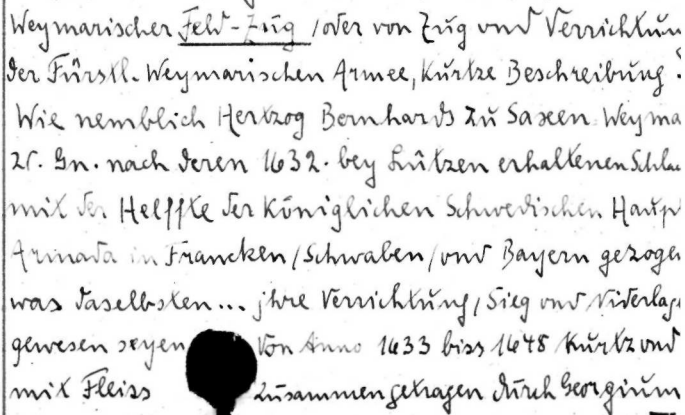 Weymarischer Feld-Zug / oder von Zug vnd Verrichtun
der Fürstl. Weymarischen Armee, Kurtze Beschreibung.
Wie nemblich Hertzog Bernhards zu Saxen Weyma
Gn. nach deren 1632. bey Lützen erhaltenen Schla
mit der Helffte der Königlichen Schwedischen Haupt
Armada in Francken / Schwaben / vnd Bayern gezoge
was daselbsten... jhre Verrichtung / Sieg vnd Niderlag
gewesen seyen Von Anno 1633 biss 1648 Kurtz vnd
mit Fleiss zusammengetragen durch Georgium